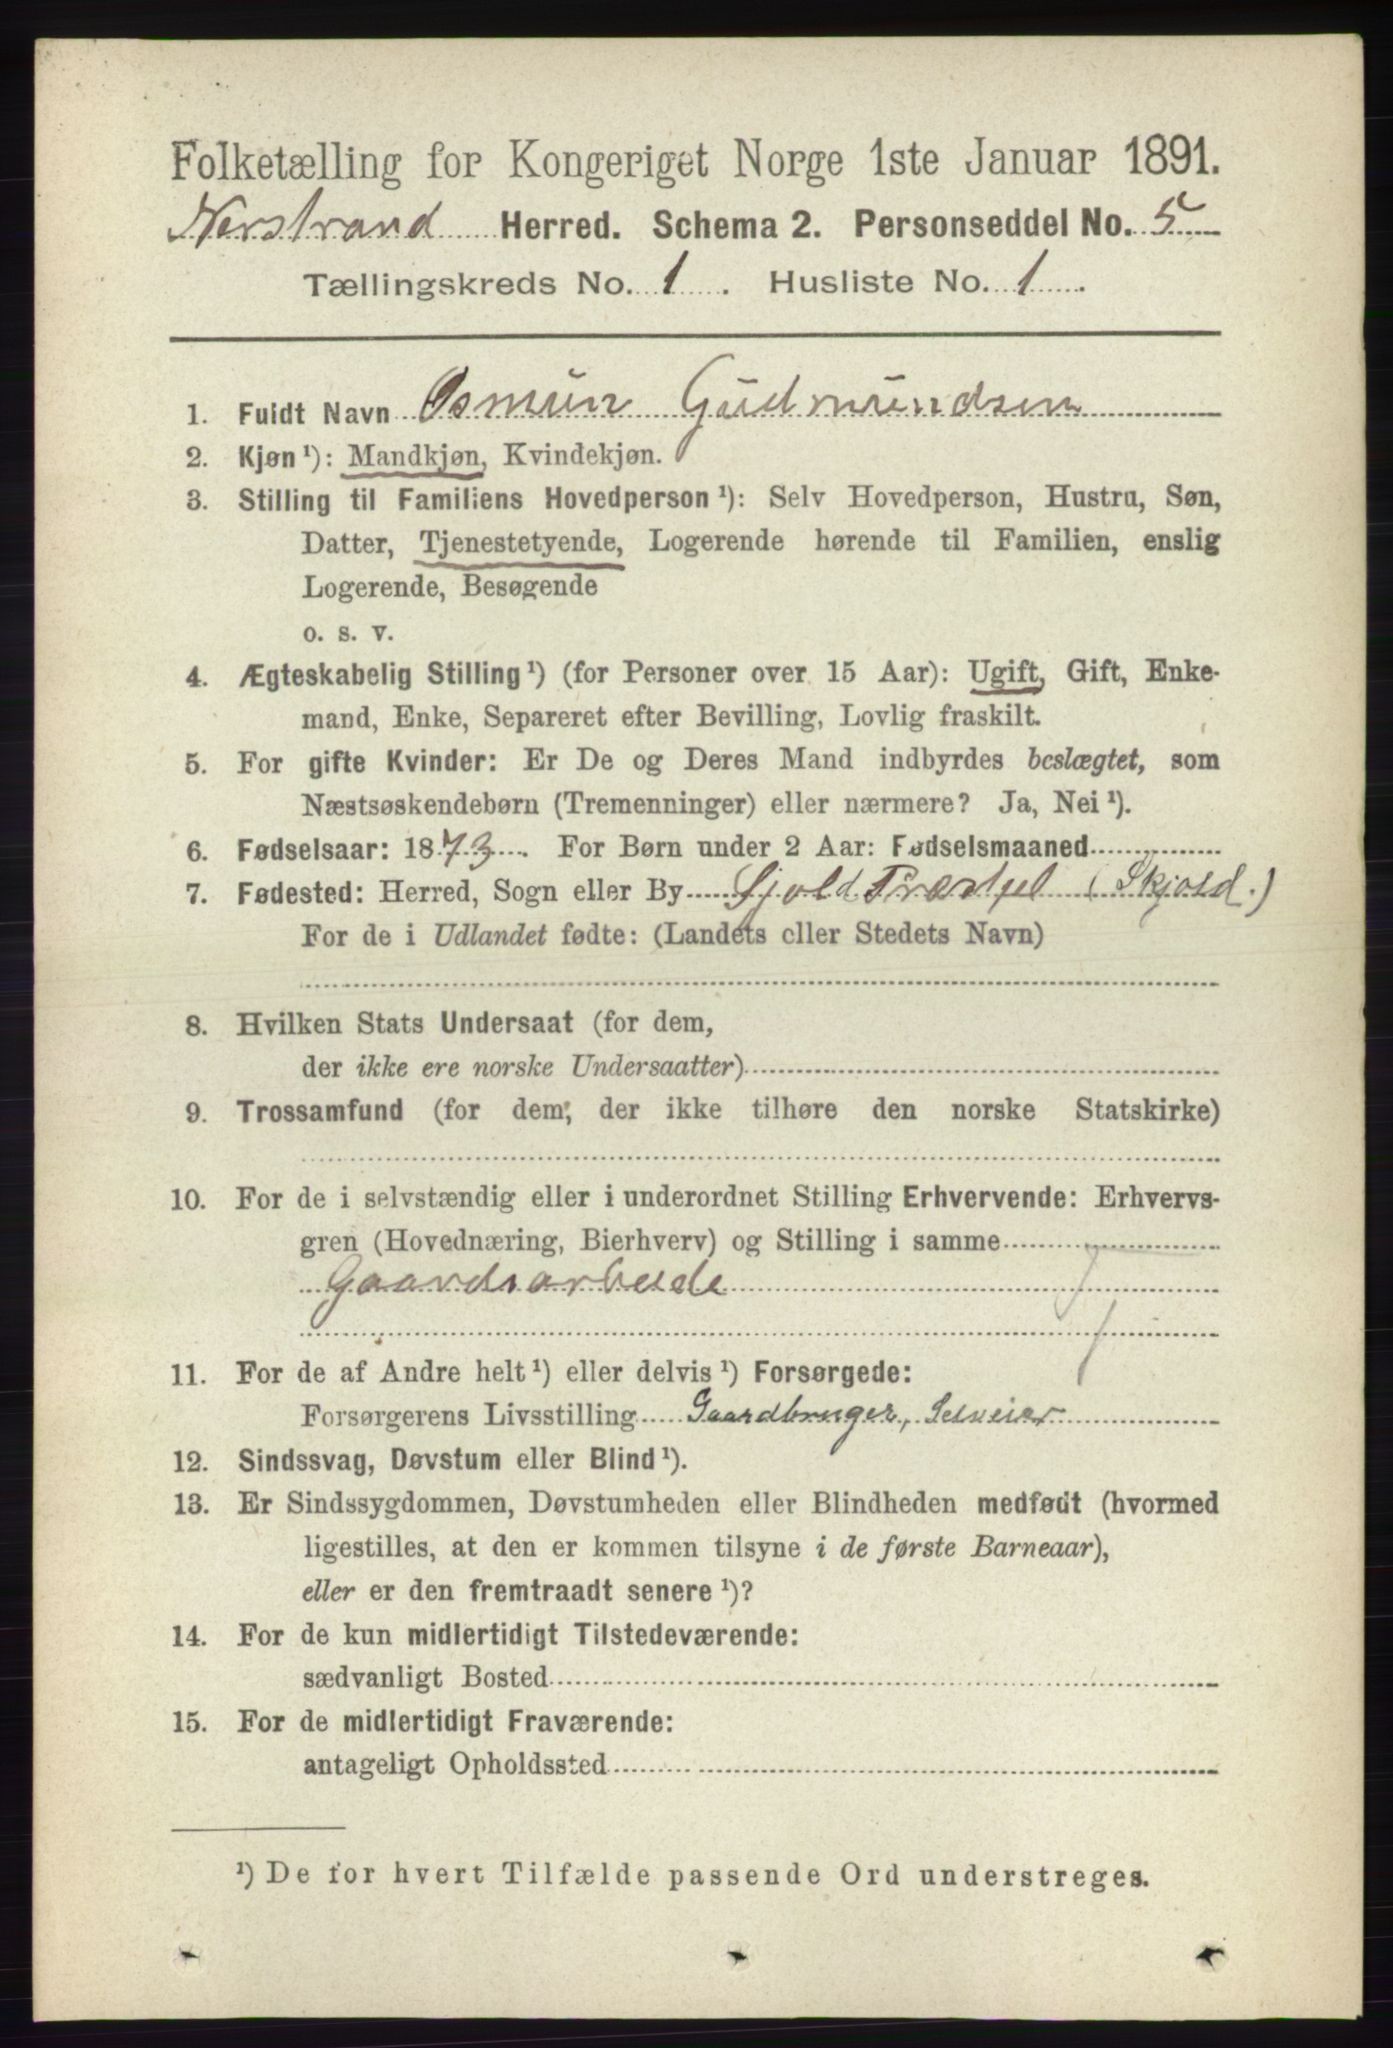 Folketælling for Kongeriget Norge 1ste Januar 1891.
Nerstrand Herred. Schema 2. Personseddel No. 5
Tællingskreds No. 1. Husliste No. 1.
1. Fuldt Navn Osmun Gudmundsen
2. Kjøn ¹): Mandkjøn, Kvindekjøn.
3. Stilling til Familiens Hovedperson ¹): Selv Hovedperson, Hustru, Søn,
Datter, Tjenestetyende, Logerende hørende til Familien, enslig
Logerende, Besøgende
o. s. v.
4. Ægteskabelig Stilling ¹) (for Personer over 15 Aar): Ugift, Gift, Enke-
mand, Enke, Separeret efter Bevilling, Lovlig fraskilt.
5. For gifte Kvinder: Er De og Deres Mand indbyrdes beslægtet, som
Næstsøskendebørn (Tremenninger) eller nærmere? Ja, Nei ¹).
6. Fødselsaar: 1873. For Børn under 2 Aar: Fødselsmaaned
7. Fødested: Herred, Sogn eller By Sjold Præstjel (Skjold.)
For de i Udlandet fødte: (Landets eller Stedets Navn)
8. Hvilken Stats Undersaat (for dem,
der ikke ere norske Undersaatter)
9. Trossamfund (for dem, der ikke tilhøre den norske Statskirke)
10. For de i selvstændig eller i underordnet Stilling Erhvervende: Erhvervs-
gren (Hovednæring, Bierhverv) og Stilling i samme
Gaardsarbeide
11. For de af Andre helt ¹) eller delvis ¹) Forsørgede:
Forsørgerens Livsstilling Gaardbruger, Selveier
12. Sindssvag, Døvstum eller Blind ¹).
13. Er Sindssygdommen, Døvstumheden eller Blindheden medfødt (hvormed
ligestilles, at den er kommen tilsyne i de første Barneaar),
eller er den fremtraadt senere ¹)?
14. For de kun midlertidigt Tilstedeværende:
sædvanligt Bosted
15. For de midlertidigt Fraværende:
antageligt Opholdssted
¹) De for hvert Tilfælde passende Ord understreges.